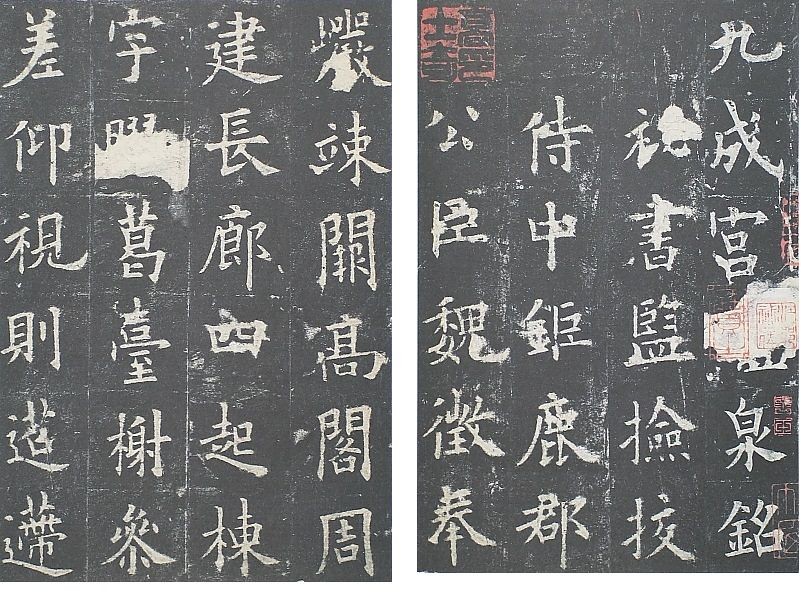 九成宮泉銘
祕書監撿挍
侍中鉅鹿郡
公臣魏徵奉
巖竦闕髙閣周
建長廊四起棟
宇葛臺榭參
差仰視則迢遰